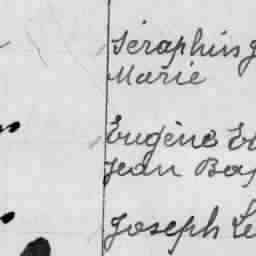 Séraphins
Marie
Eugène
Jean Bap
Joseph Le